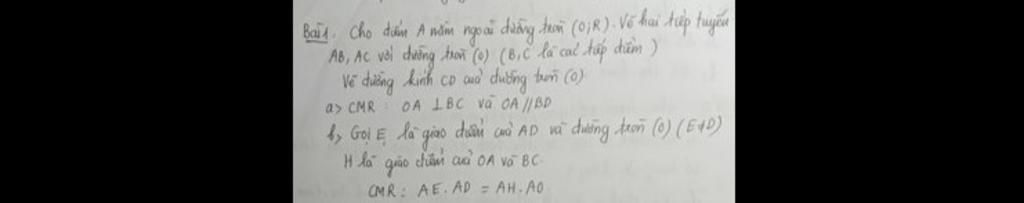 Bài 1. Cho điểm A nằm ngoài đường tròn (O;R). Vẽ hai tiếp tuyến
AB, AC với đường tròn (O) (B,C là các tiếp điểm)
Vẽ đường kính CD của đường tròn (O)
a> CMR: OA ⊥ BC và OA // BD
b> Gọi E là giao điểm của AD và đường tròn (O) (E≠D)
H là giao điểm của OA và BC.
CMR: AE.AD = AH.AO